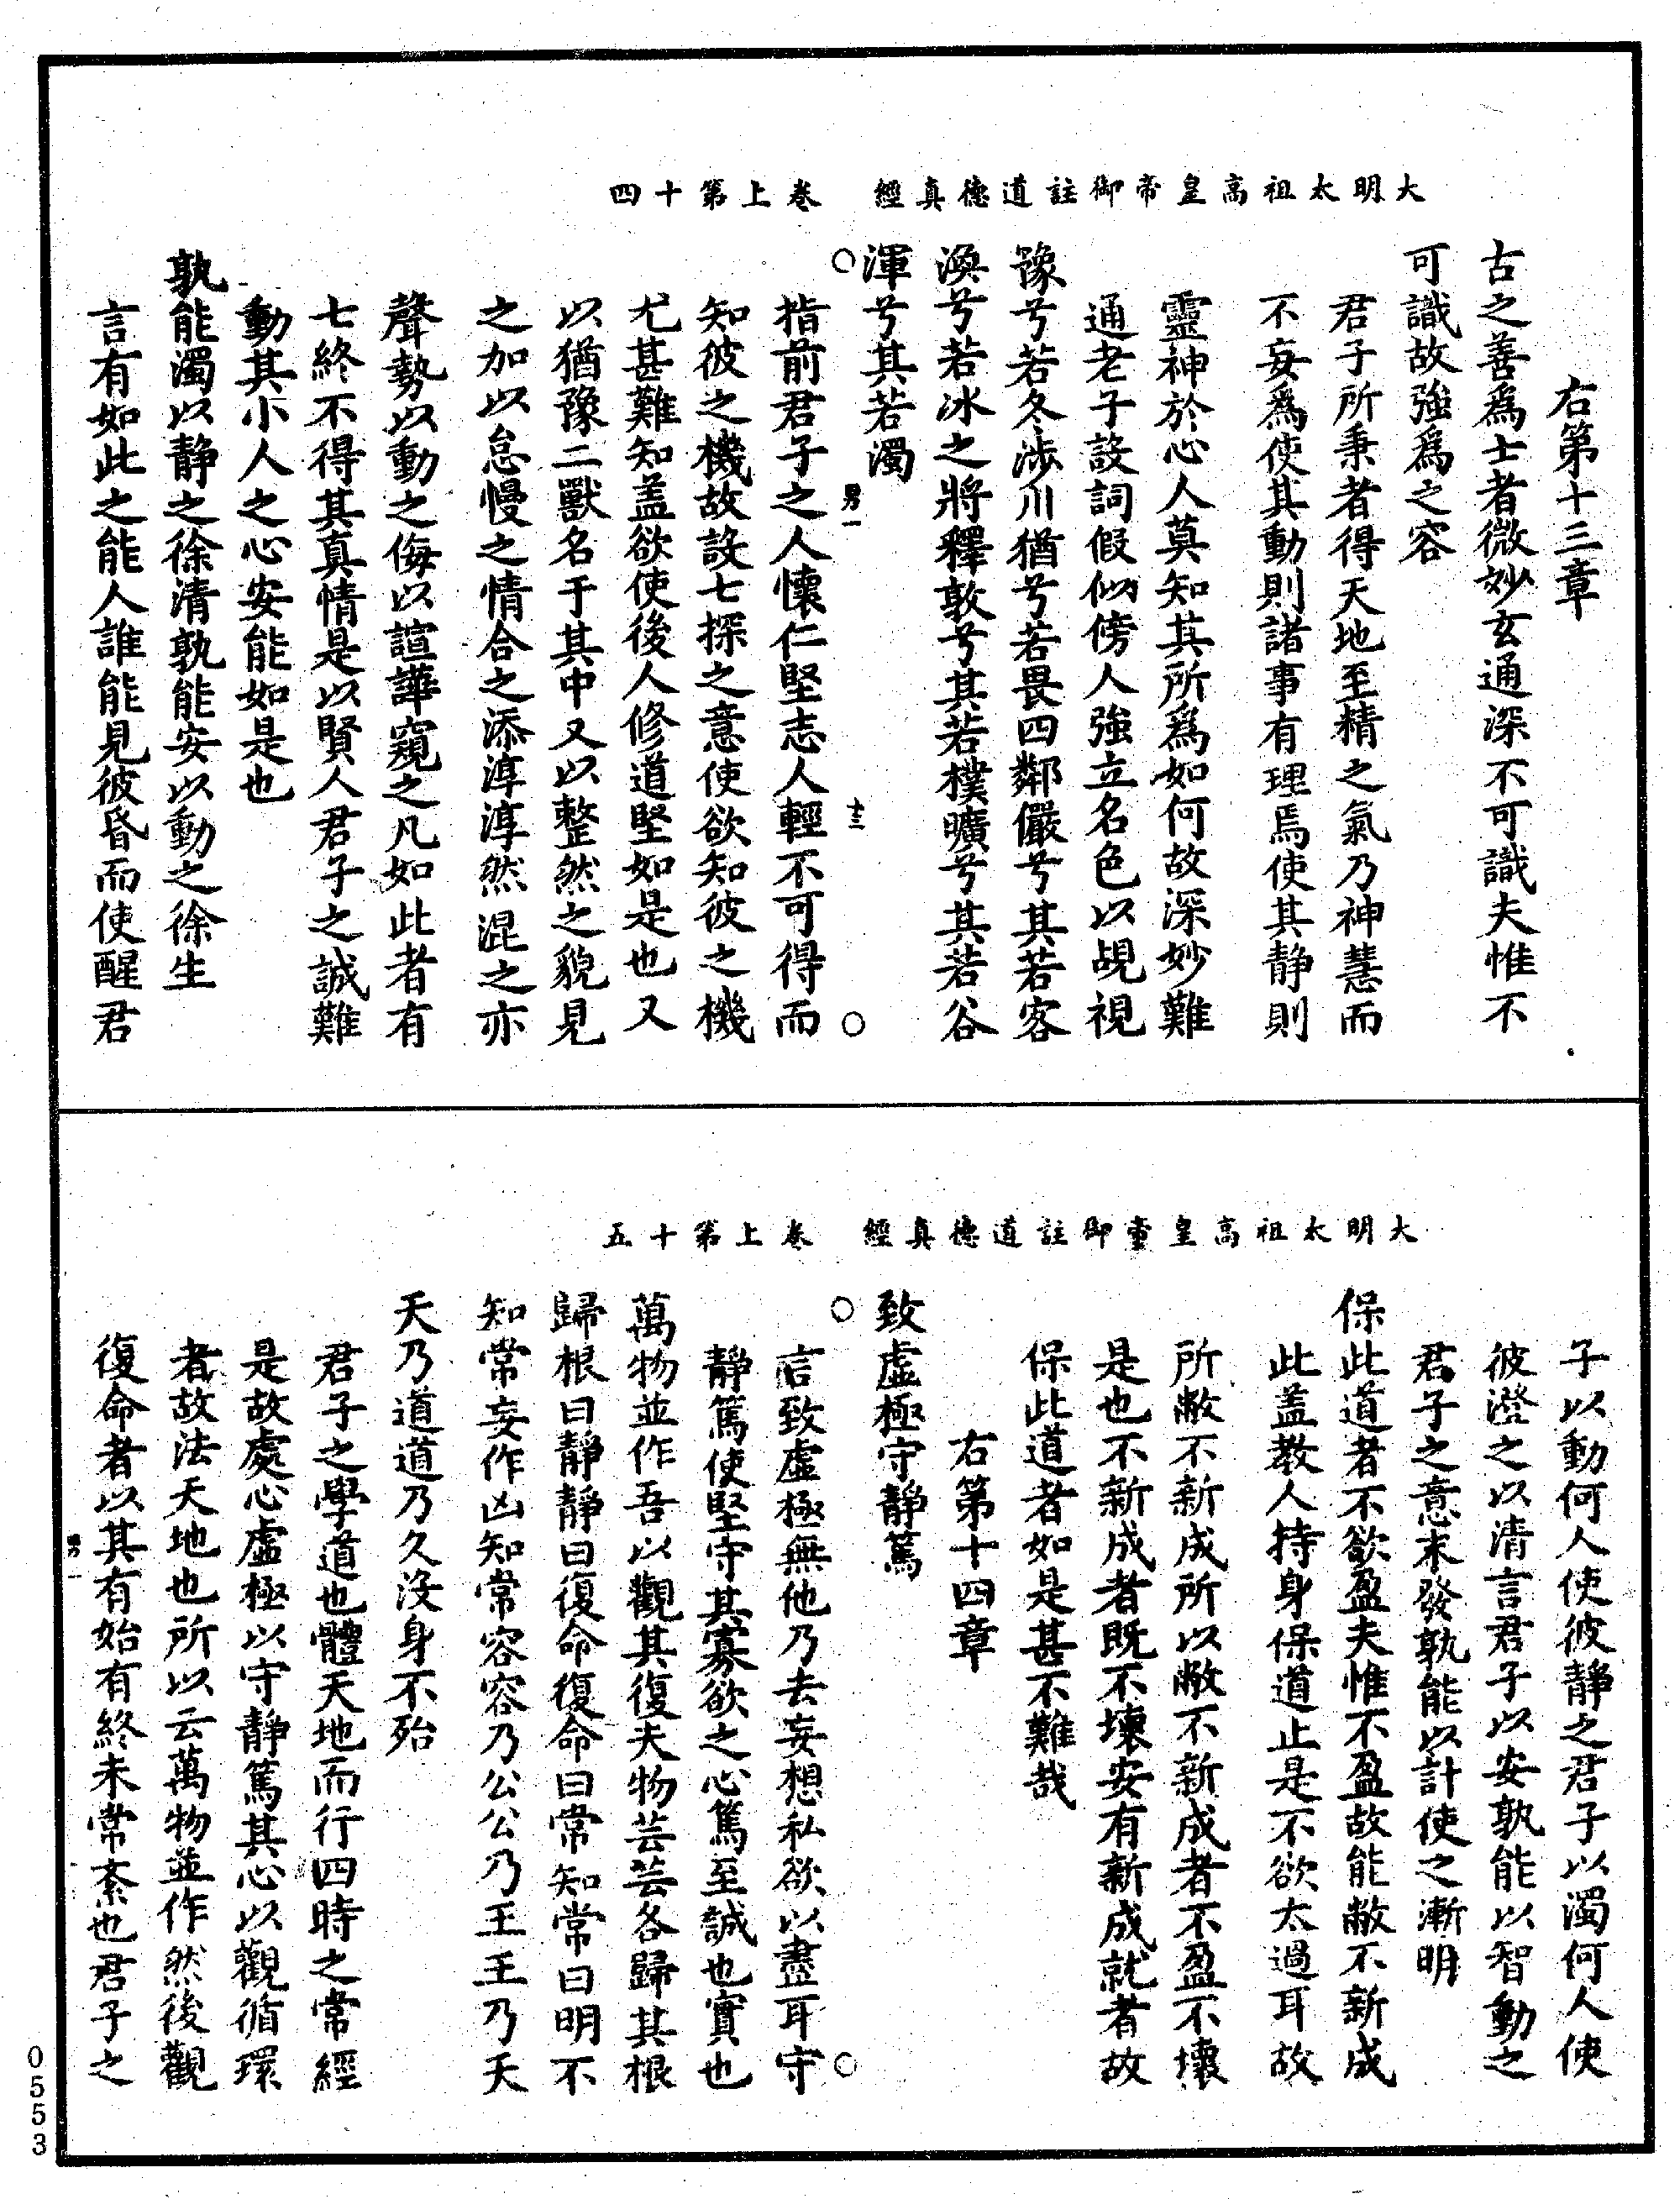 大明太祖高皇帝御註道德真經　卷上第十四
右第十三章
古之善爲士者微妙玄通深不可識夫惟不
可識故強爲之容
君子所秉者得天地至精之氣乃神慧而
不妄爲使其動則諸事有理焉使其静則
靈神於心人莫知其所爲如何故深妙難
通老子設詞假似傍人強立名色以覘視
豫兮若冬涉川猶兮若畏四鄰儼兮其若客
渙兮若冰之將釋敦兮其若樸曠兮其若谷
渾兮其若濁
○　男一　十三　○
指前君子之人懷仁堅志人輕不可得而
知彼之機故設七探之意使欲知彼之機
尤甚難知盖欲使後人修道堅如是也又
以猶豫二獸名于其中又以整然之貌見
之加以怠慢之情合之添淳淳然混之亦
聲勢以動之侮以諠譁窺之凡如此者有
七終不得其真情是以賢人君子之誠難
動其小人之心安能如是也
孰能濁以静之徐清孰能安以動之徐生
言有如此之能人誰能見彼昏而使醒君
大明太祖高皇帝御註道德真經　卷上第十五
子以動何人使彼静之君子以濁何人使
彼澄之以清言君子以安孰能以智動之
君子之意末發孰能以計使之漸明
保此道者不欲盈夫惟不盈故能敝不新成
此盖教人持身保道止是不欲太過耳故
所敝不新成所以敝不新成者不盈不壞
是也不新成者既不壞安有新成就者故
保此道者如是甚不難哉
右第十四章
致虛極守静篤
○　○
言致虛極無他乃去妄想私欲以盡耳守
静篤使堅守其寡欲之心篤至誠也實也
萬物並作吾以觀其復夫物芸芸各歸其根
歸根曰静静曰復命復命曰常知常曰明不
知常妄作凶知常容容乃公公乃王王乃天
天乃道道乃久沒身不殆
君子之學道也體天地而行四時之常經
是故處心虛極以守静篤其心以觀循環
者故法天地也所以云萬物並作然後觀
復命者以其有始有終未常紊也君子之
男一
0553